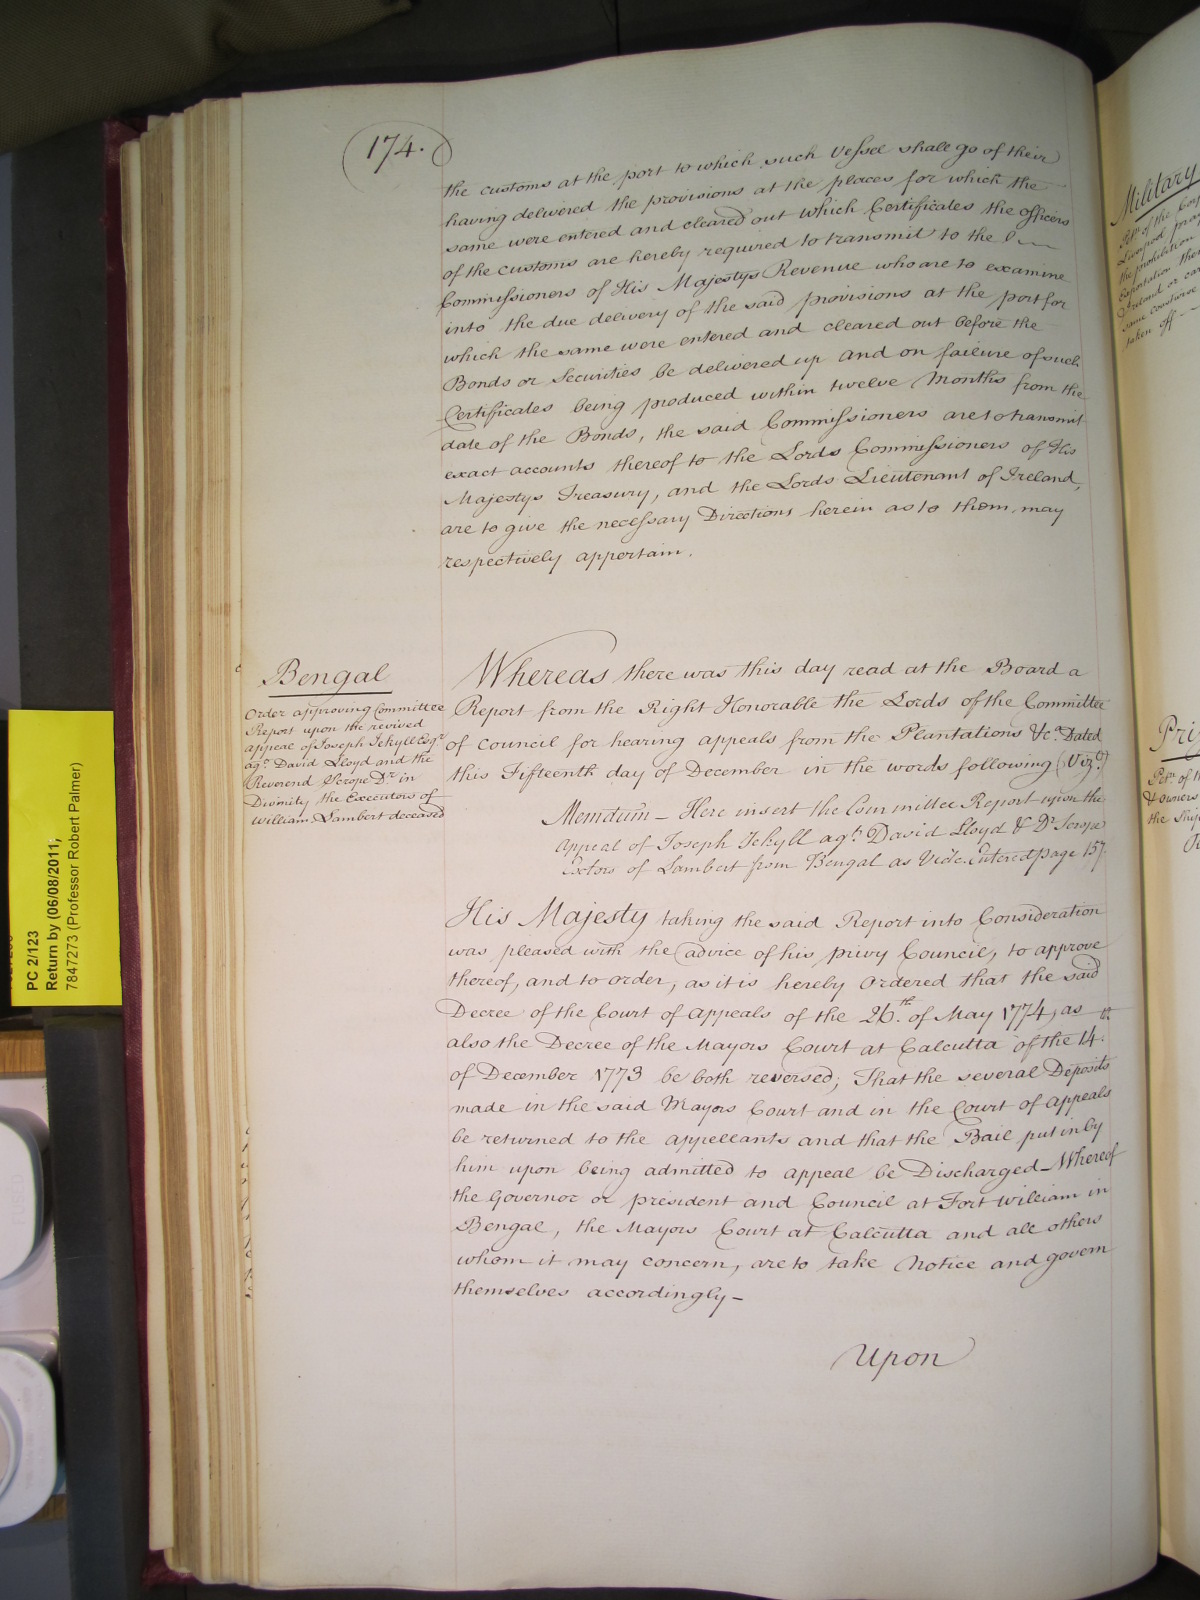 174.
the customs at the port to which such Vessel shall go of their
having delivered the provisions at the places for which the
same were entered and cleared out which Certificates the officers
of the customs are hereby required to transmit to the
Commissioners of His Majestys Revenue who are to examine
into the due delivery of the said provisions at the port for
which the same were entered and cleared out before the
Bonds or Securities be delivered up and on failure of such
Certificates being produced within twelve Months from the
date of the Bonds, the said Commissioners are to transmit
exact accounts thereof to the Lords Commissioners of His
Majestys Treasury, and the Lords Lieutenant of Ireland,
are to give the necessary Directions herein as to them may
respectively appertain.
Bengal
Order approving Committee
Report upon the revived
appeal of Joseph Jekyll Esqr.
agt. David Lloyd and the
Reverend Scrope Dr. in
Divinity, the Executors of
William Lambert deceased
Whereas there was this day read at the Board a
Report from the Right Honorable the Lords of the Committee
of Council for hearing appeals from the Plantations &ca. Dated
this Fifteenth day of December in the words following (Vizt.)
Memdum – Here insert the Committee Report upon the
Appeal of Joseph Jekyll agt. David Lloyd & Dr. Scrope
Exctors of Lambert from Bengal as Vide Entered page 157.
His Majesty taking the said Report into Consideration
was pleased with the advice of his privy Council, to approve
thereof, and to order, as it is hereby Ordered that the said
Decree of the Court of Appeals of the 26.th of May 1774, as
also the Decree of the Mayors Court at Calcutta of the 14.th
of December 1773 be both reversed; That the several Deposits
made in the said Mayors Court and in the Court of Appeals
be returned to the appellants and that the Bail put in by
him upon being admitted to appeal be Discharged – Whereof
the Governor or president and Council at Fort William in
Bengal, the Mayors Court at Calcutta and all others
whom it may concern, are to take Notice and govern
themselves accordingly –
Upon
PC 2/123
Return by (06/08/2011,
7847273 (Professor Robert Palmer)
Military
the prohibition
taken off
the Ship